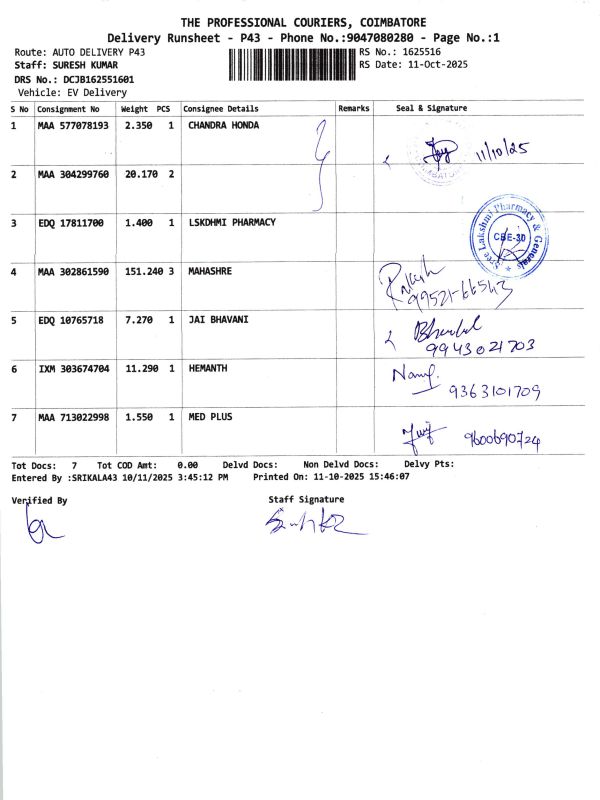 THE PROFESSIONAL COURIERS, COIMBATORE
Delivery Runsheet - P43 - Phone No.:9047080280 - Page No.:1
Route: AUTO DELIVERY P43 RS No.: 1625516
Staff: SURESH KUMAR RS Date: 11-Oct-2025
DRS No.: DCJB162551601
Vehicle: EV Delivery
S No Consignment No Weight PCS Consignee Details Remarks Seal & Signature
1 MAA 577078193 2.350 1 CHANDRA HONDA
11/10/25
2 MAA 304299760 20.170 2
3 EDQ 17811700 1.400 1 LSKDHMI PHARMACY
Sree Lakshmi Pharmacy & Generals
CBE-30
4 MAA 302861590 151.240 3 MAHASHRE
Rakesh
99521-66543
5 EDQ 10765718 7.270 1 JAI BHAVANI
9943021703
6 IXM 303674704 11.290 1 HEMANTH
9363101709
7 MAA 713022998 1.550 1 MED PLUS
9600690724
Tot Docs: 7 Tot COD Amt: 0.00 Delvd Docs: Non Delvd Docs: Delvy Pts:
Entered By :SRIKALA43 10/11/2025 3:45:12 PM Printed On: 11-10-2025 15:46:07
Verified By Staff Signature